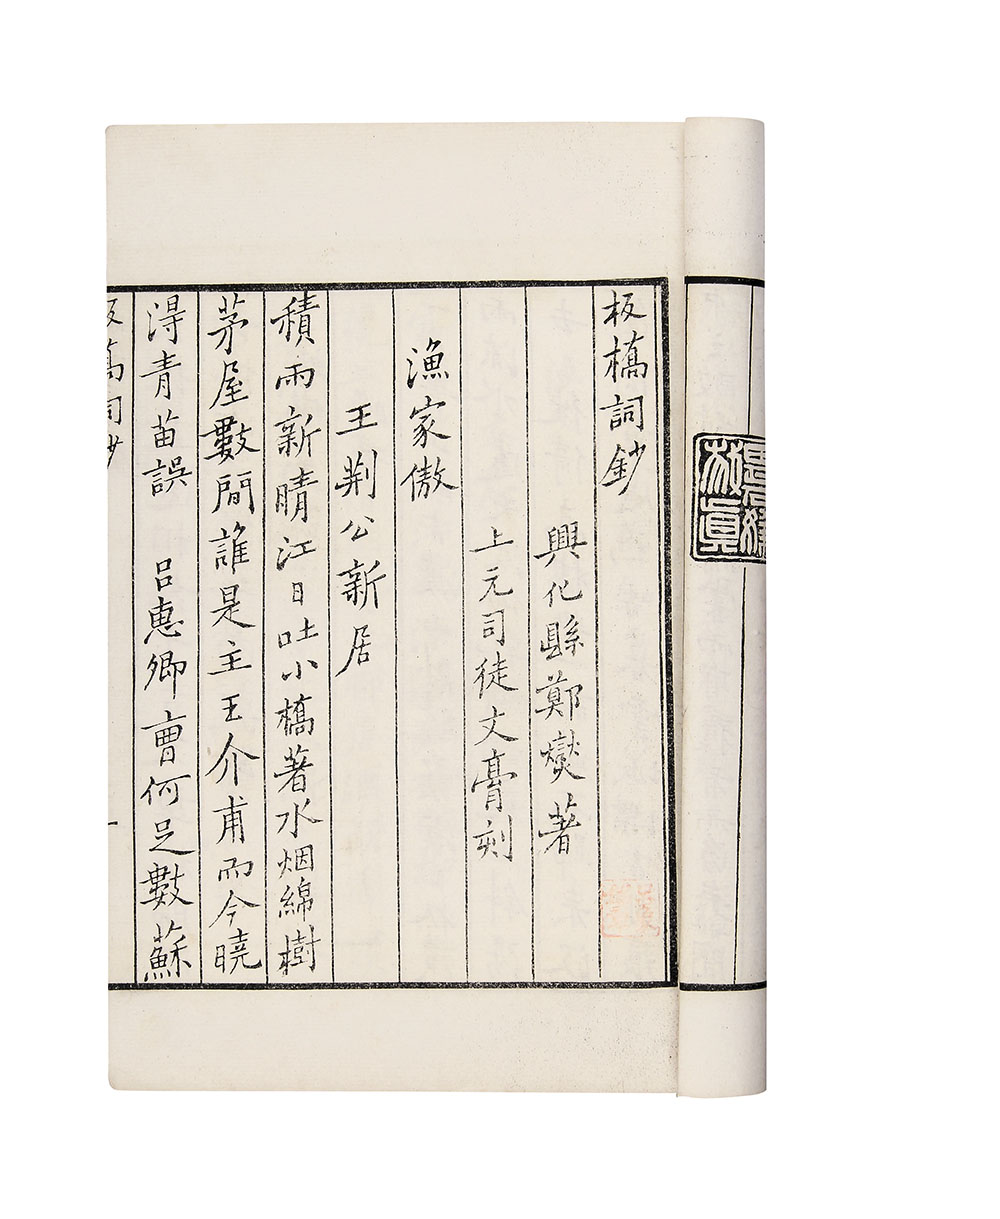 板橋詞鈔
興化縣鄭燮著
上元司徒文膏刻
漁家傲
王荆公新居
積雨新晴江日吐小橋著水烟綿樹
茅屋數間誰是主王介甫而今曉
淂青苗誤　吕惠卿曹何足數蘇
板橋詞鈔
一